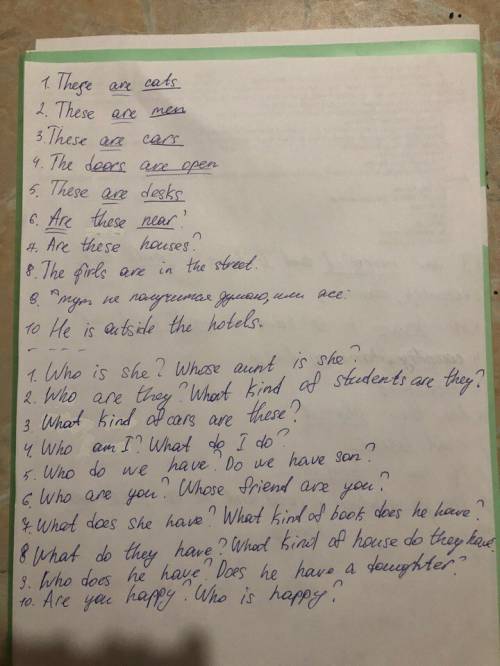 1. These are cats
2. These are men
3. These are cars
4. The doors are open
5. These are desks
6. Are these near?
7. Are these houses?
8. The girls are in the street.
9. *тут не получится думаю, или все:
10. He is outside the hotels.
1. Who is she? Whose aunt is she?
2. Who are they? What kind of students are they?
3 What kind of cars are these?
4. Who am I? What do I do?
5. Who do we have? Do we have son?
6. Who are you? Whose friend are you?
7. What does she have? What kind of book does he have?
8 What do they have? What kind of house do they have
9. Who does he have? Does he have a daughter?
10. Are you happy? Who is happy?